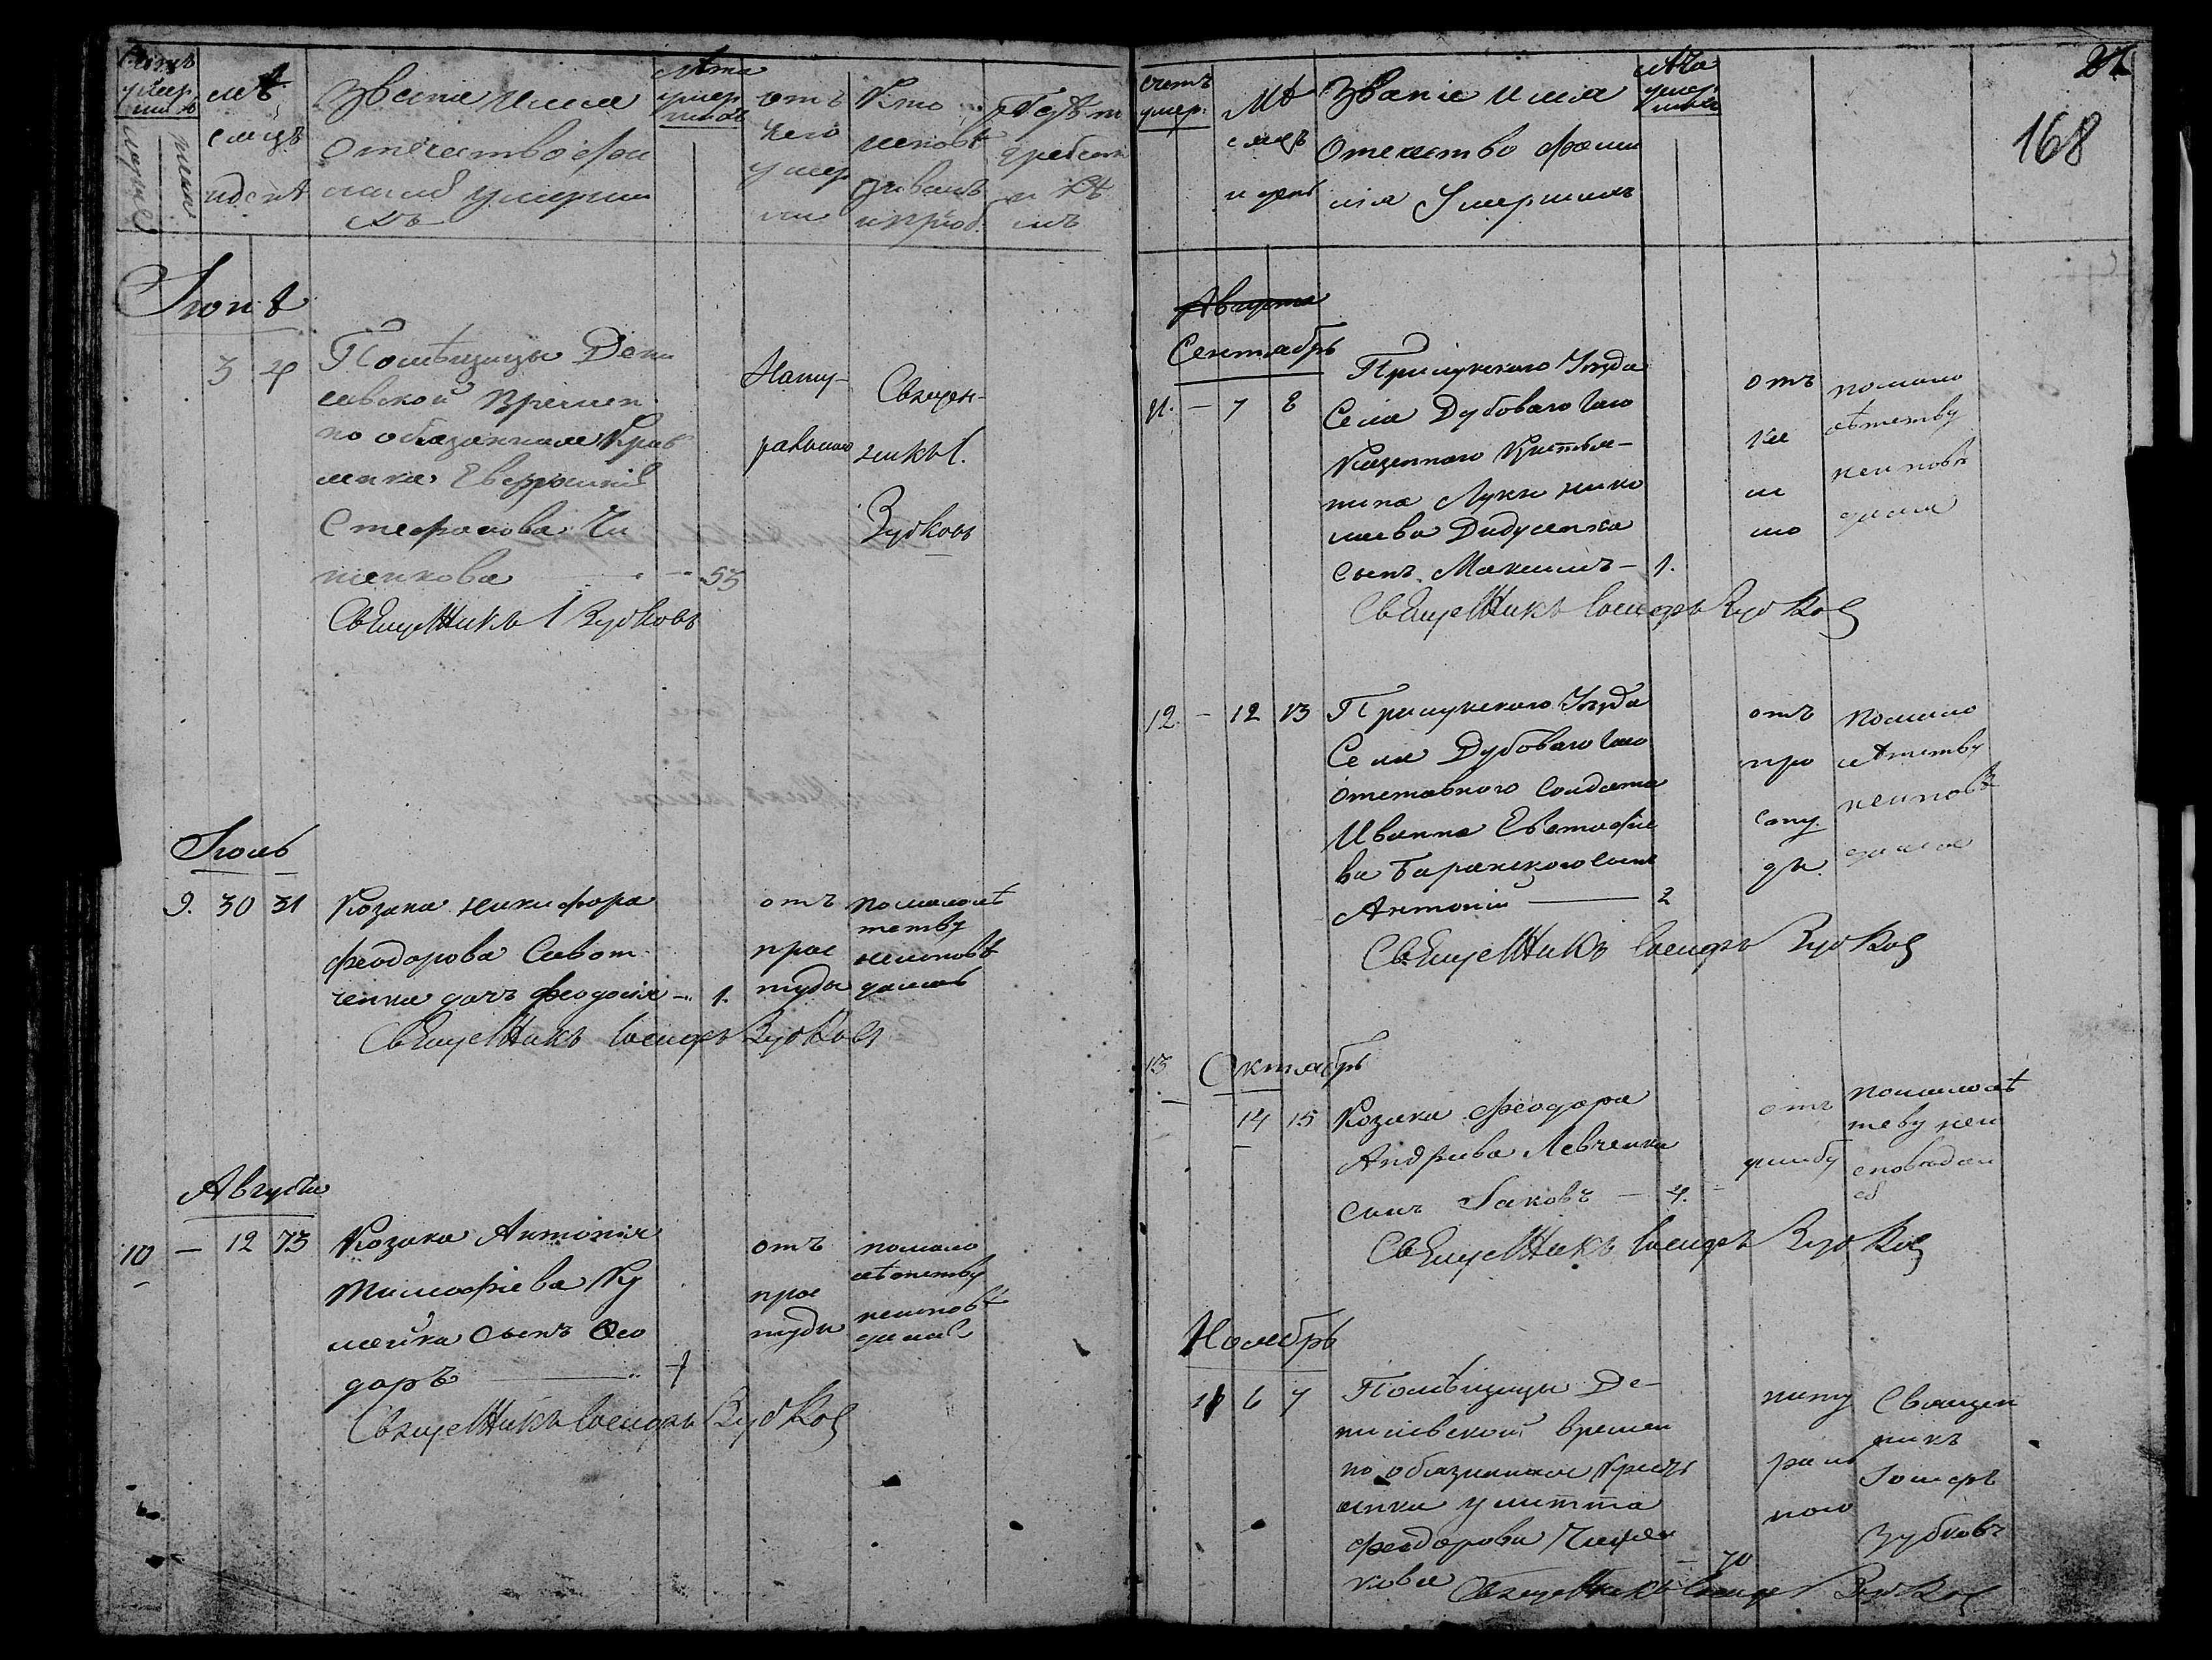 Счетъ
умер
шихъ
мужс
женс
мѣ
сяцъ
и день
Званіе имя
Отечество фами
лія умерши
хъ
Лѣта
умер
шихъ
отъ
чего
умер
ли
Кто
исповѣ
дывалъ
и пріоб.
Гдѣ
погребен
и кѣ
мъ
Іюнь
3 4
Помѣщицы Дени
севской времен
но обязанная Крест
янка Евфросинія
Стефанова Чи
шенкова — 55
Нату-
ральною
Священ-
никъ І.
Зубковъ
Священникъ І Зубковъ
Іюль
9. 30 31
Козака Никифора
Феодорова Савот
ченка дочь Феодосія — 1.
отъ
прос
туды
по малолѣ
тству
неисповѣ
дана
Священникъ Іосифъ Зубковъ
Августъ
10 — 12 13
Козака Антонія
Тимофіева Ку
лейка сынъ Ѳео
доръ — 1
отъ
прос
туды
по мало
лѣтству
неисповѣ
данъ
Священникъ Іосифъ Зубков
счетъ
умер.
Мѣ
сяцъ
и день
Званіе имя
Отечество фами
лія Умершихъ
лѣта
умер
шихъ
27
168
Августа
Сентябрь
11. — 7 8
Прилукскаго Уезда
Села Дубоваго Гаю
Казеннаго Крестья-
нина Луки Нико
лаева Дидусенка
сынъ Максимъ — 1.
отъ
по мало
лѣтству
неисповѣ
Священникъ Іосифъ Зубков
12. — 12 13
Прилукскаго Уезда
Села Дубоваго Гаю
отставного Солдата
Иванна Евстафіе
ва Баранского сынъ
Антоній — 2
отъ
про
сту
ды.
по мало
лѣтству
неисповѣ
данъ
Священникъ Іосифъ Зубков
13 Октябрь
14 15
Козака Феодора
Андріева Левченка
сынъ Іаковъ — 4.
отъ
по малолѣ
тству неи
сповѣдан
Священникъ Іосифъ Зубков
Ноябрь
6 7
Помѣщицы Де-
нисевской времен
но обязанная Крестья
янка Улитта
Феодорова
кова — 70
нату
раль
ною
Священ
никъ
Іосифъ
Зубковъ
Священникъ Іосиф Зубков